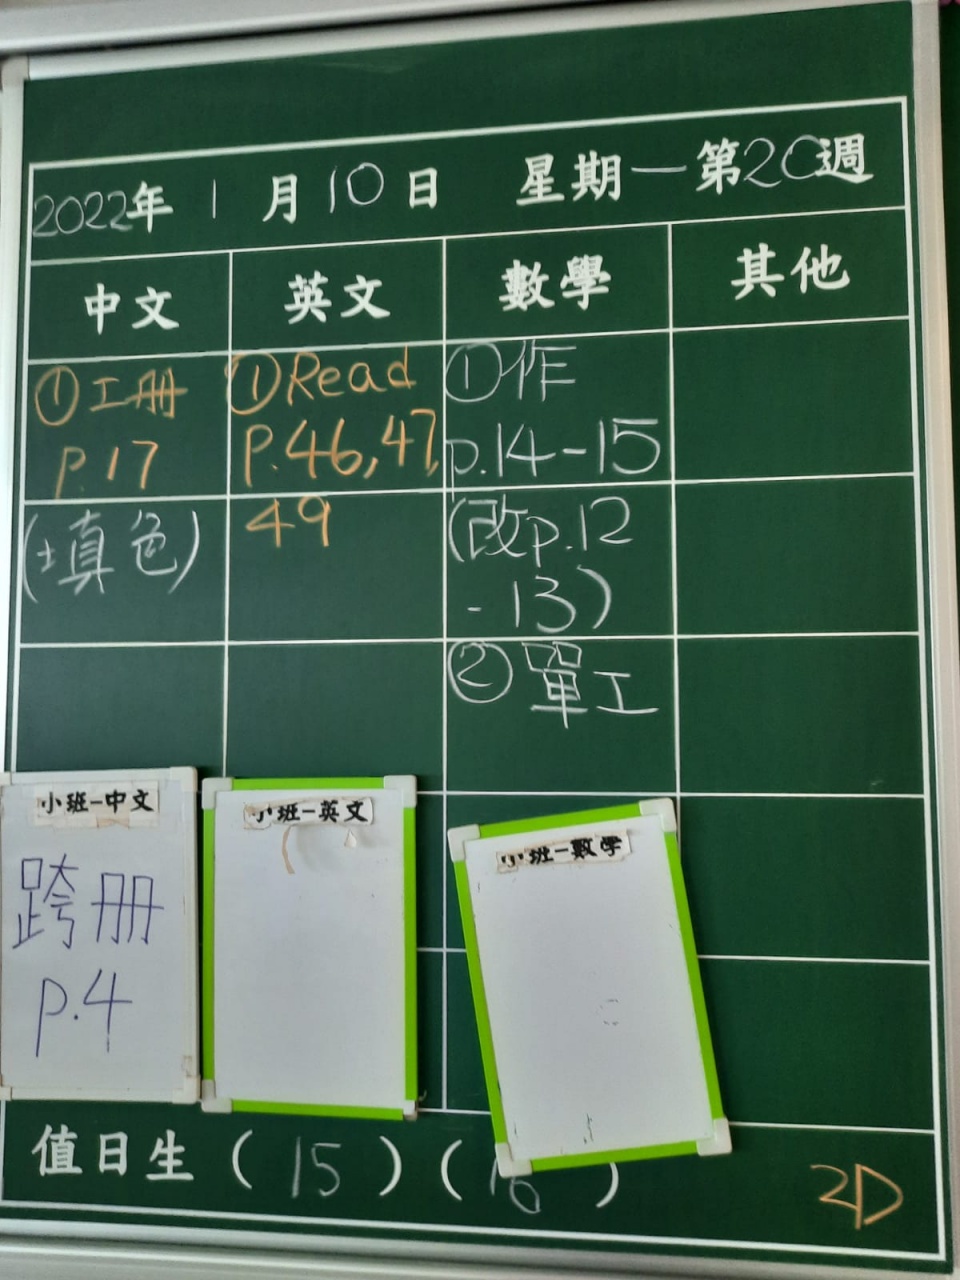 2022年 1 月 10 日 星期一 第20週
中文 英文 數學 其他
①工冊
p.17
(填色)
①Read
p.46,47,
49
①作
p.14-15
(改p.12
-13)
②單工
小班-中文
跨冊
p.4
小班-英文
小班-數學
值日生 (15) (16)
2D